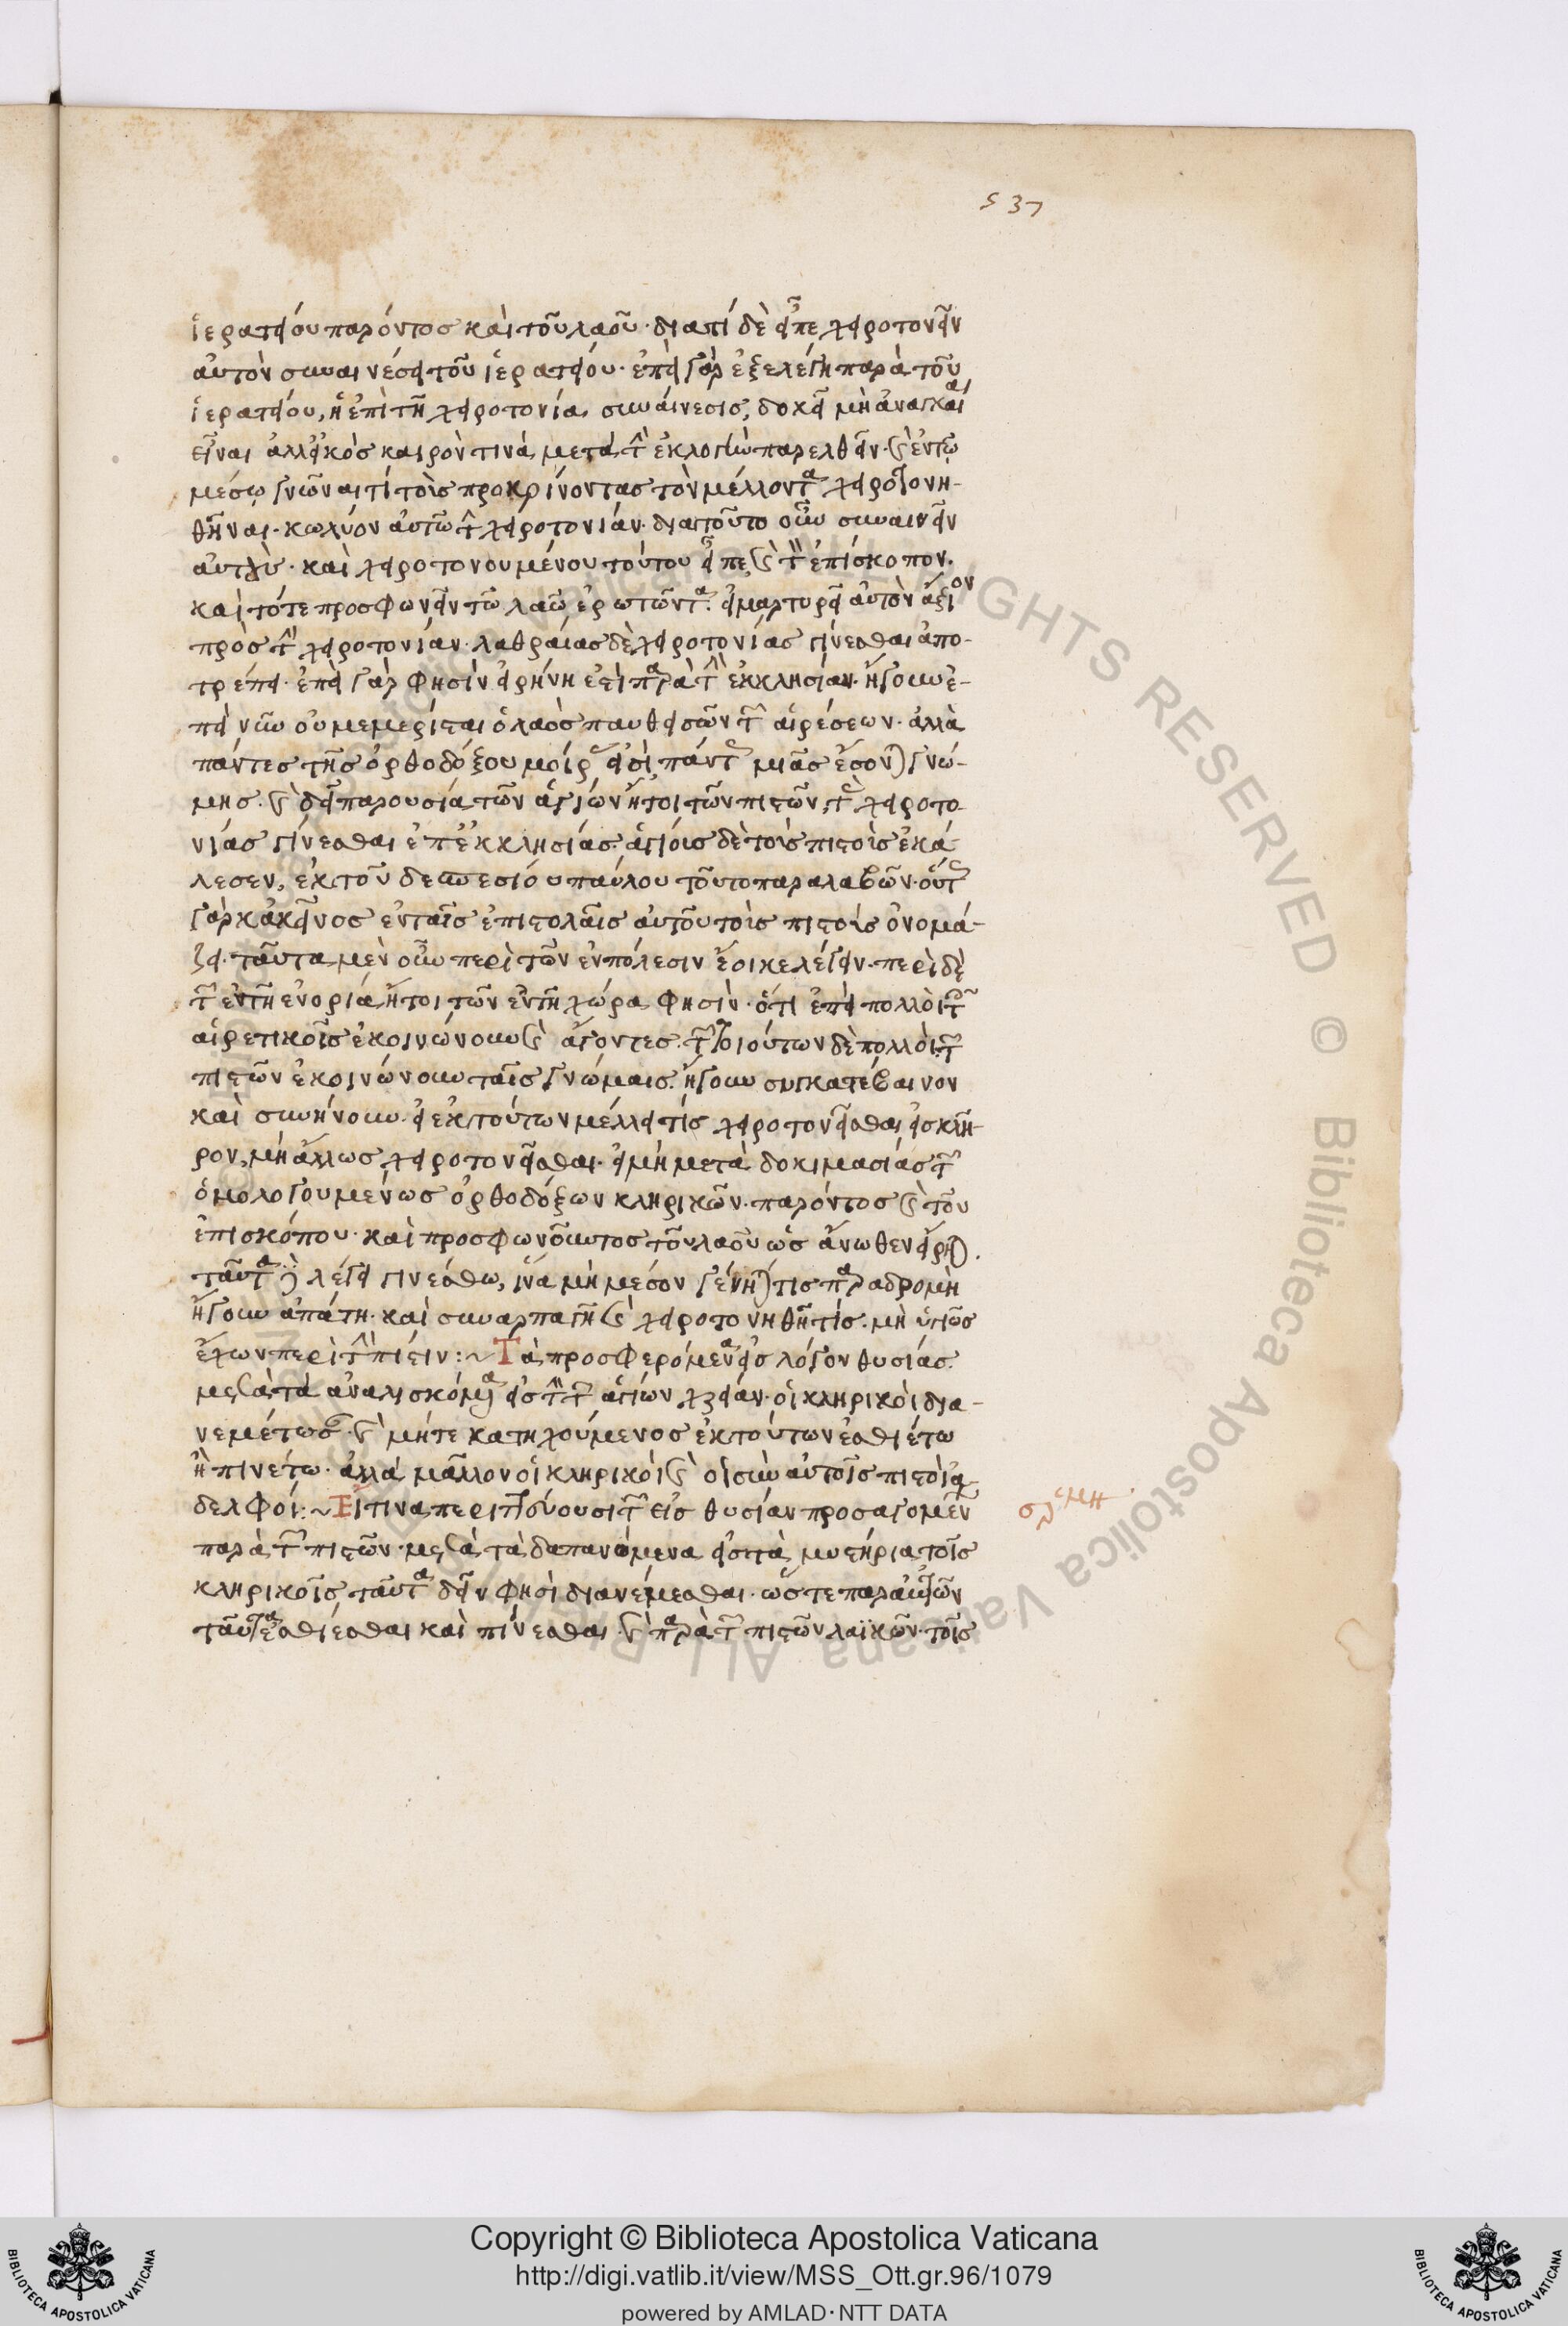 537
ἱερατείου παρόντος καὶ τοῦ λαοῦ· διατί δὲ εἶπε χειροτονεῖν
αὐτὸν συναινέσει τοῦ ἱερατείου· ἐπεὶ γὰρ ἐξελέγη παρὰ τοῦ
ἱερατείου, ἡ ἐπὶ τῆ χειροτονία συναίνεσις, δοκεῖ μὴ ἀναγκαία
εἶναι ἀλλ' εἰκὸς καιρόν τινα μετὰ τὴν ἐκλογὴν παρελθεῖν· καὶ ἐν τῶ
μέσω γνῶναι τί τοὺς προκρίνοντας τὸν μέλλοντα χειροτονη-
θῆναι· κωλύον αὐτῶ τὴν χειροτονίαν· διατοῦτο οὖν συναινεῖν
αὐτοὺς· καὶ χειροτονουμένου τούτου εἶπε καὶ τὸν ἐπίσκοπον·
καὶ τότε προσφωνεῖν τῶ λαῶ ἐρωτῶντα· εἰ μαρτυρεῖ αὐτὸν ἄξιον
πρὸς τὴν χειροτονίαν· λαθραίας δὲ χειροτονίας γίνεσθαι ἀπο-
τρέπει· ἐπεὶ γὰρ φησὶν εἰρήνη ἐστὶ παρὰ τὴν ἐκκλησίαν· ἤγουν ἐ-
πεὶ νῦν οὐ μεμερίσται ὁ λαὸς παυθεισῶν τῶν αἱρέσεων· ἀλλὰ
πάντες τῆς ὀρθοδόξου μοίρας εἰσὶ, πάντες μιᾶς ἔσονται γνώ-
μης· καὶ δεῖ παρουσία τῶν ἁγίων ἤτοι τῶν πιστῶν, τὰς χειροτο
νίας γίνεσθαι ἐπ' ἐκκλησίας· ἁγίους δὲ τοὺς πιστοὺς ἐκά
λεσεν, ἐκ τοῦ θεσπεσίου παύλου τοῦτο παραλαβών· οὕτως
γὰρ κἀκεῖνος ἐν ταῖς ἐπιστολαῖς αὐτοῦ τοὺς πιστοὺς ὀνομά-
ζει· ταῦτα μὲν οὖν περὶ τῶν ἐν πόλεσιν ἔοικε λέγειν· περὶ δὲ
τῶν ἐν τῆ ἐνορία, ἤτοι τῶν ἐν τῆ χώρα φησὶν· ὅτι ἐπεὶ πολλοὶ τοῖς
αἱρετικοῖς ἐκοινώνουν καὶ ἄγοντες· τῶν τοιούτων δὲ πολλοὶ τῶν
πιστῶν ἐκοινώνουν ταῖς γνώμαις· ἤγουν συγκατέβαινον
καὶ συνήνουν· εἰ ἐκ τούτων μέλλει τίς χειροτονεῖσθαι εἰς κλῆ-
ρον, μὴ ἄλλως χειροτονεῖσθαι· εἰ μὴ μετὰ δοκιμασίας τῶν
ὁμολογουμένως ὀρθοδόξων κληρικῶν· παρόντος καὶ τοῦ
ἐπισκόπου· καὶ προσφωνοῦντος τοῦ λαοῦ ὡς ἄνωθεν εἴρηται·
ταῦτα δὲ λέγει γινέσθω, ἵνα μὴ μέσον γένηται τις παραδρομὴ
ἤγουν ἀπάτη· καὶ συναρπαγῆ καὶ χειροτονηθῆ τίς· μὴ ὑγιῶς
ἔχων περὶ τὴν πίστιν :~ Τὰ προσφερόμενα εἰς λόγον θυσίας
μετὰ τὰ ἀναλισκόμενα εἰς τὴν τῶν ἁγίων χρείαν· οἱ κληρικοὶ δια-
νεμέτωσαν· καὶ μήτε κατηχούμενος ἐκ τούτων ἐσθιέτω
ἢ πινέτω· ἀλλὰ μᾶλλον οἱ κληρικοὶ καὶ οἱ σὺν αὐτοῖς πιστοὶ ἀ-
δελφοί :~ Εἴ τινα περιττεύουσι τῶν εἰς θυσίαν προσαγομένων
παρὰ τῶν πιστῶν· μετὰ τὰ δαπανώμενα εἰς τὰ μυστήρια τοῖς
κληρικοῖς ταῦτα δεῖν φησὶ διανέμεσθαι· ὥστε παρ' αὐτῶν
ταῦτα ἐσθίεσθαι καὶ πίνεσθαι καὶ παρὰ τῶν πιστῶν λαϊκῶν· τοῖς
Copyright © Biblioteca Apostolica Vaticana
http://digi.vatlib.it/view/MSS_Ott.gr.96/1079
powered by AMLAD·NTT DATA